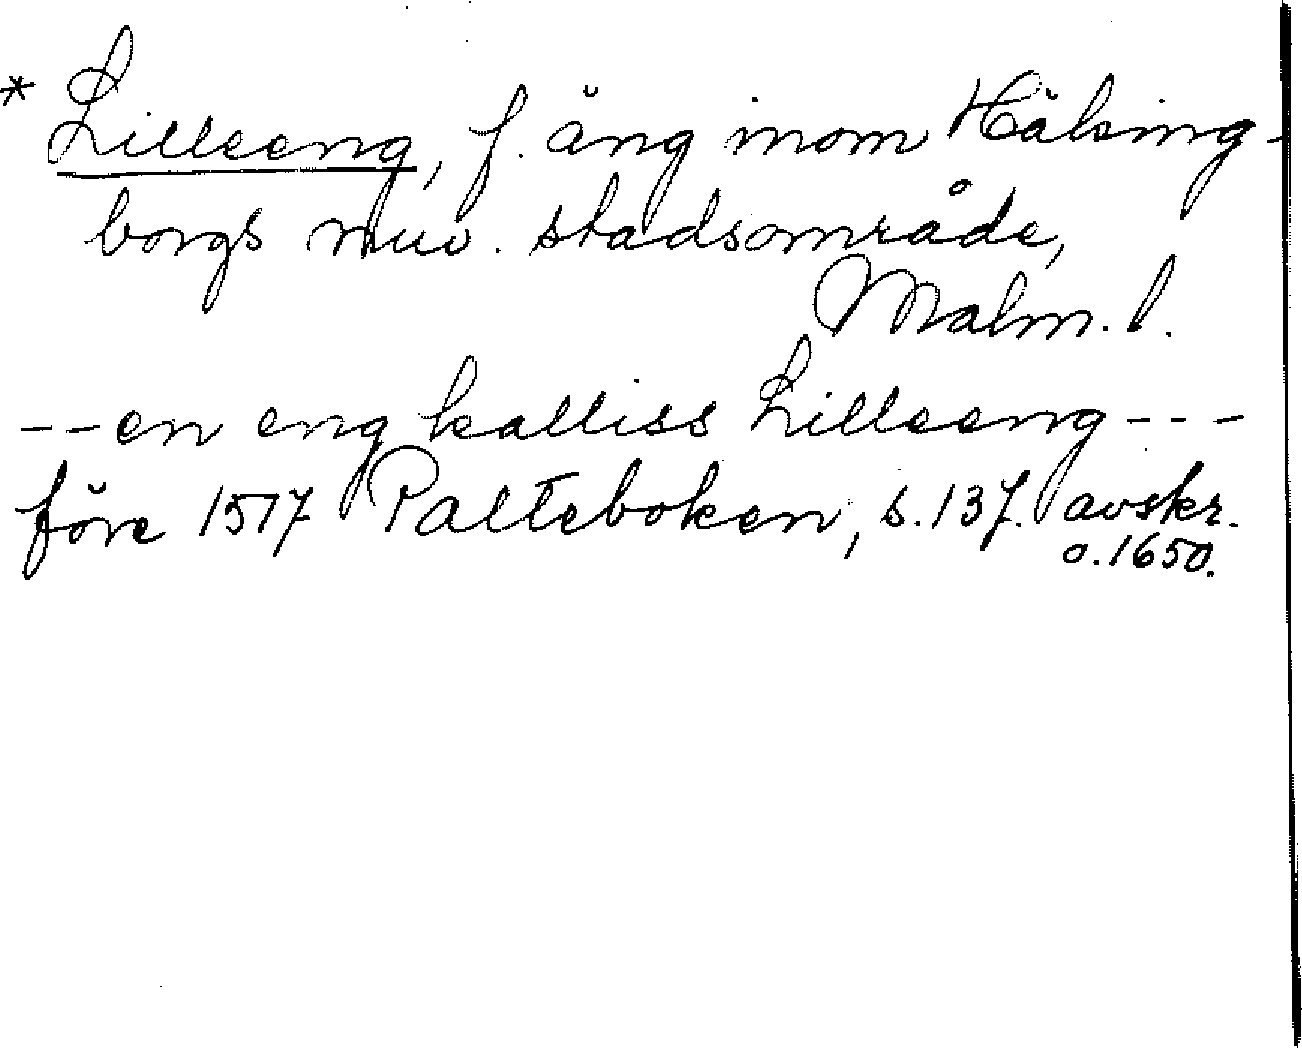 * Lilleeng, f. äng inom Hälsing-
borgs nuv. stadsområde,
Malm. l.
--en eng kalliss Lilleeng---
före 1517 Palteboken, s. 137. avskr.
o. 1650.